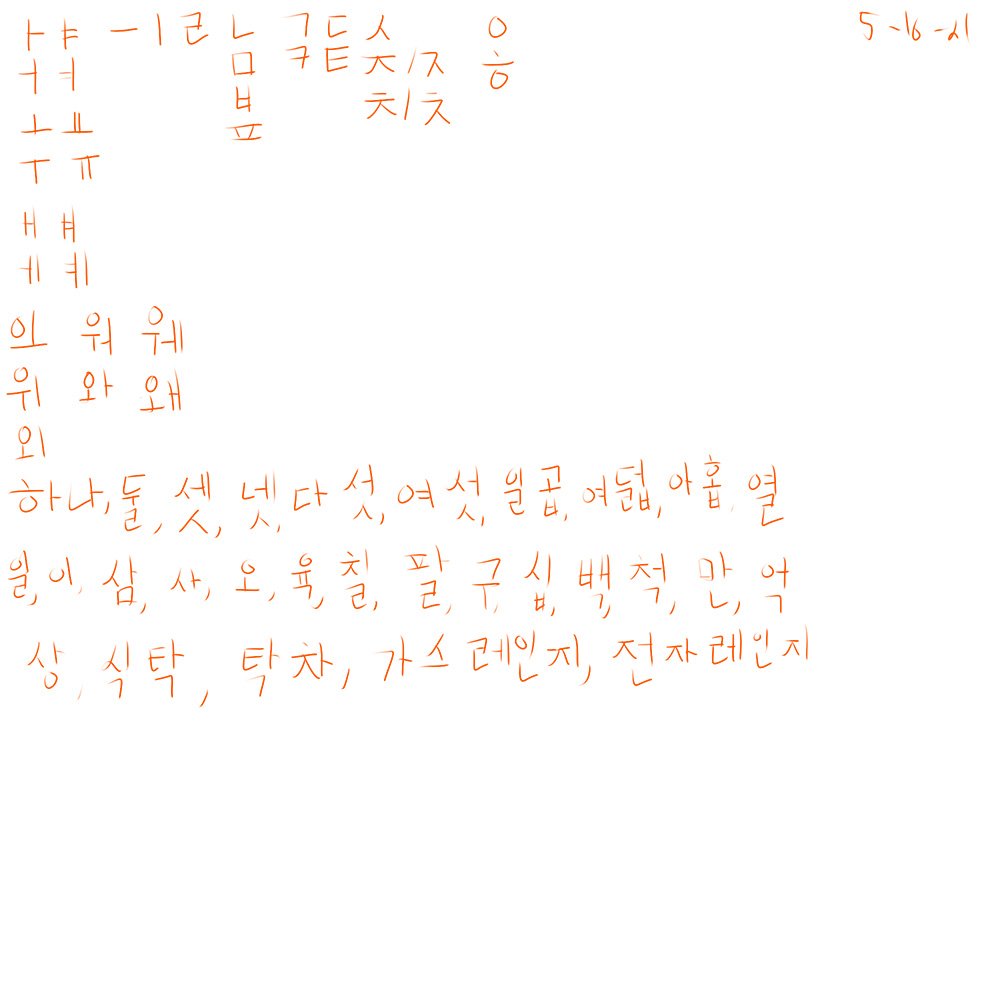 ㅏ ㅑ ㅡ ㅣ ㄹ ㄴ ㄱ ㄷ ㅅ ㅇ 5-16-21
ㅓ ㅕ ㅁ ㅋ ㅌ ㅈ/ㅈ ㅎ
ㅂ ㅊ/ㅊ
ㅗ ㅛ ㅍ
ㅜ ㅠ
ㅐ ㅒ
ㅔ ㅖ
의 워 웨
위 와 왜
외
하나, 둘, 셋, 넷, 다섯, 여섯, 일곱, 여덟, 아홉, 열
일, 이, 삼, 사, 오, 육, 칠, 팔, 구, 십, 백, 척, 만, 억
상, 식탁, 탁차, 가스레인지, 전자레인지